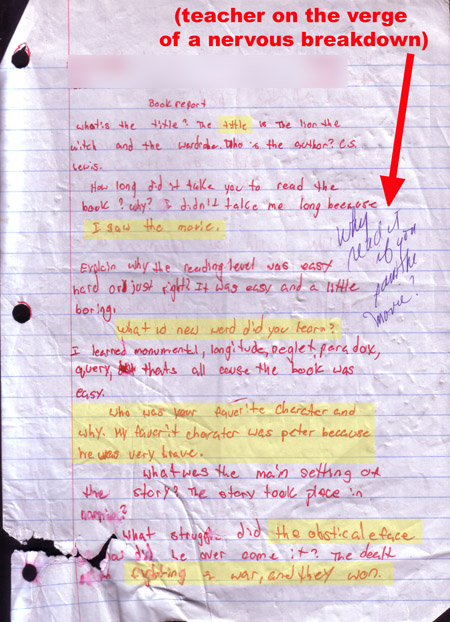 (teacher on the verge
of a nervous breakdown)
Book report
what's the title? The tittle is The lion the
witch and the wardrobe. Who is the author? C.S.
Lewis.
How long did it take you to read the
book? why? It didn't take me long because
I saw the movie.
Why
read it
if you
saw the
movie?
Explain why the reading level was easy
hard or just right? It was easy and a little
boring.
What 10 new werd did you learn?
I learned monumental, longitude, neglet, paradox,
query, thats all cause the book was
easy.
Who was your faverite charater and
why. My faverit charater was peter because
he was very brave.
what was the main setting of
the story? The story took place in
what struggle did the obsticale face
how did he over come it? The death
fighting a war, and they won.